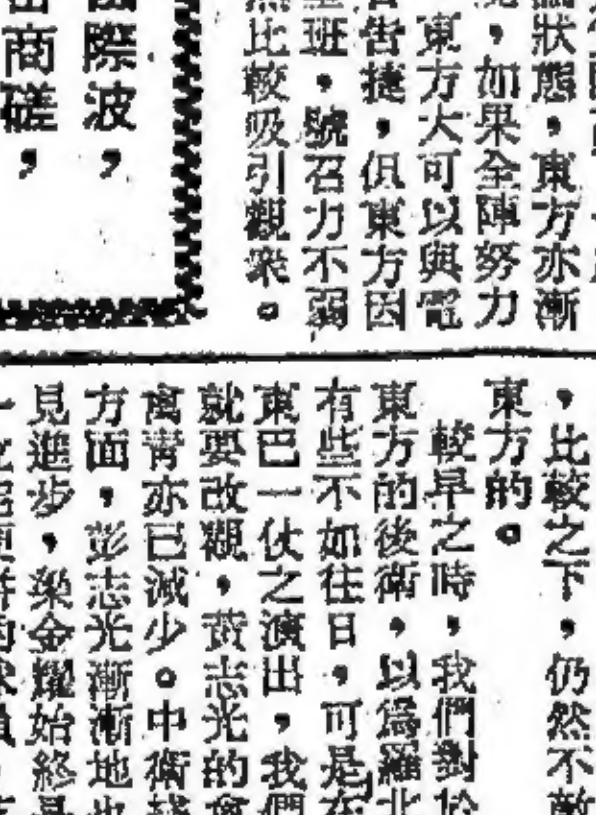 狀態，東方亦漸
，如果全陣努力
東方大可以與電
告捷，但東方因
班，號召力不弱
比較吸引觀衆。
際波，
商磋，
，比較之下，仍然不敵
東方的。
較早之時，我們對於
東方的後衛，以爲羅北
有些不如往日，可是在
東巴一伙之演出，我們
就要改觀，黃志光的
亦已減少。中衛
方面，彭志光漸漸地也
見進步，梁金耀始終是